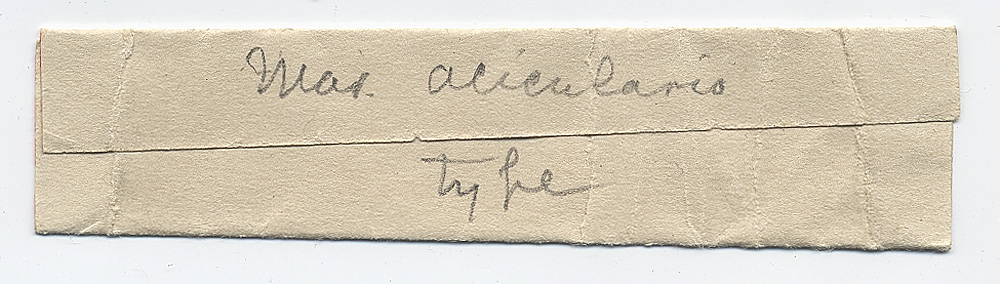 Max. acicularis
type